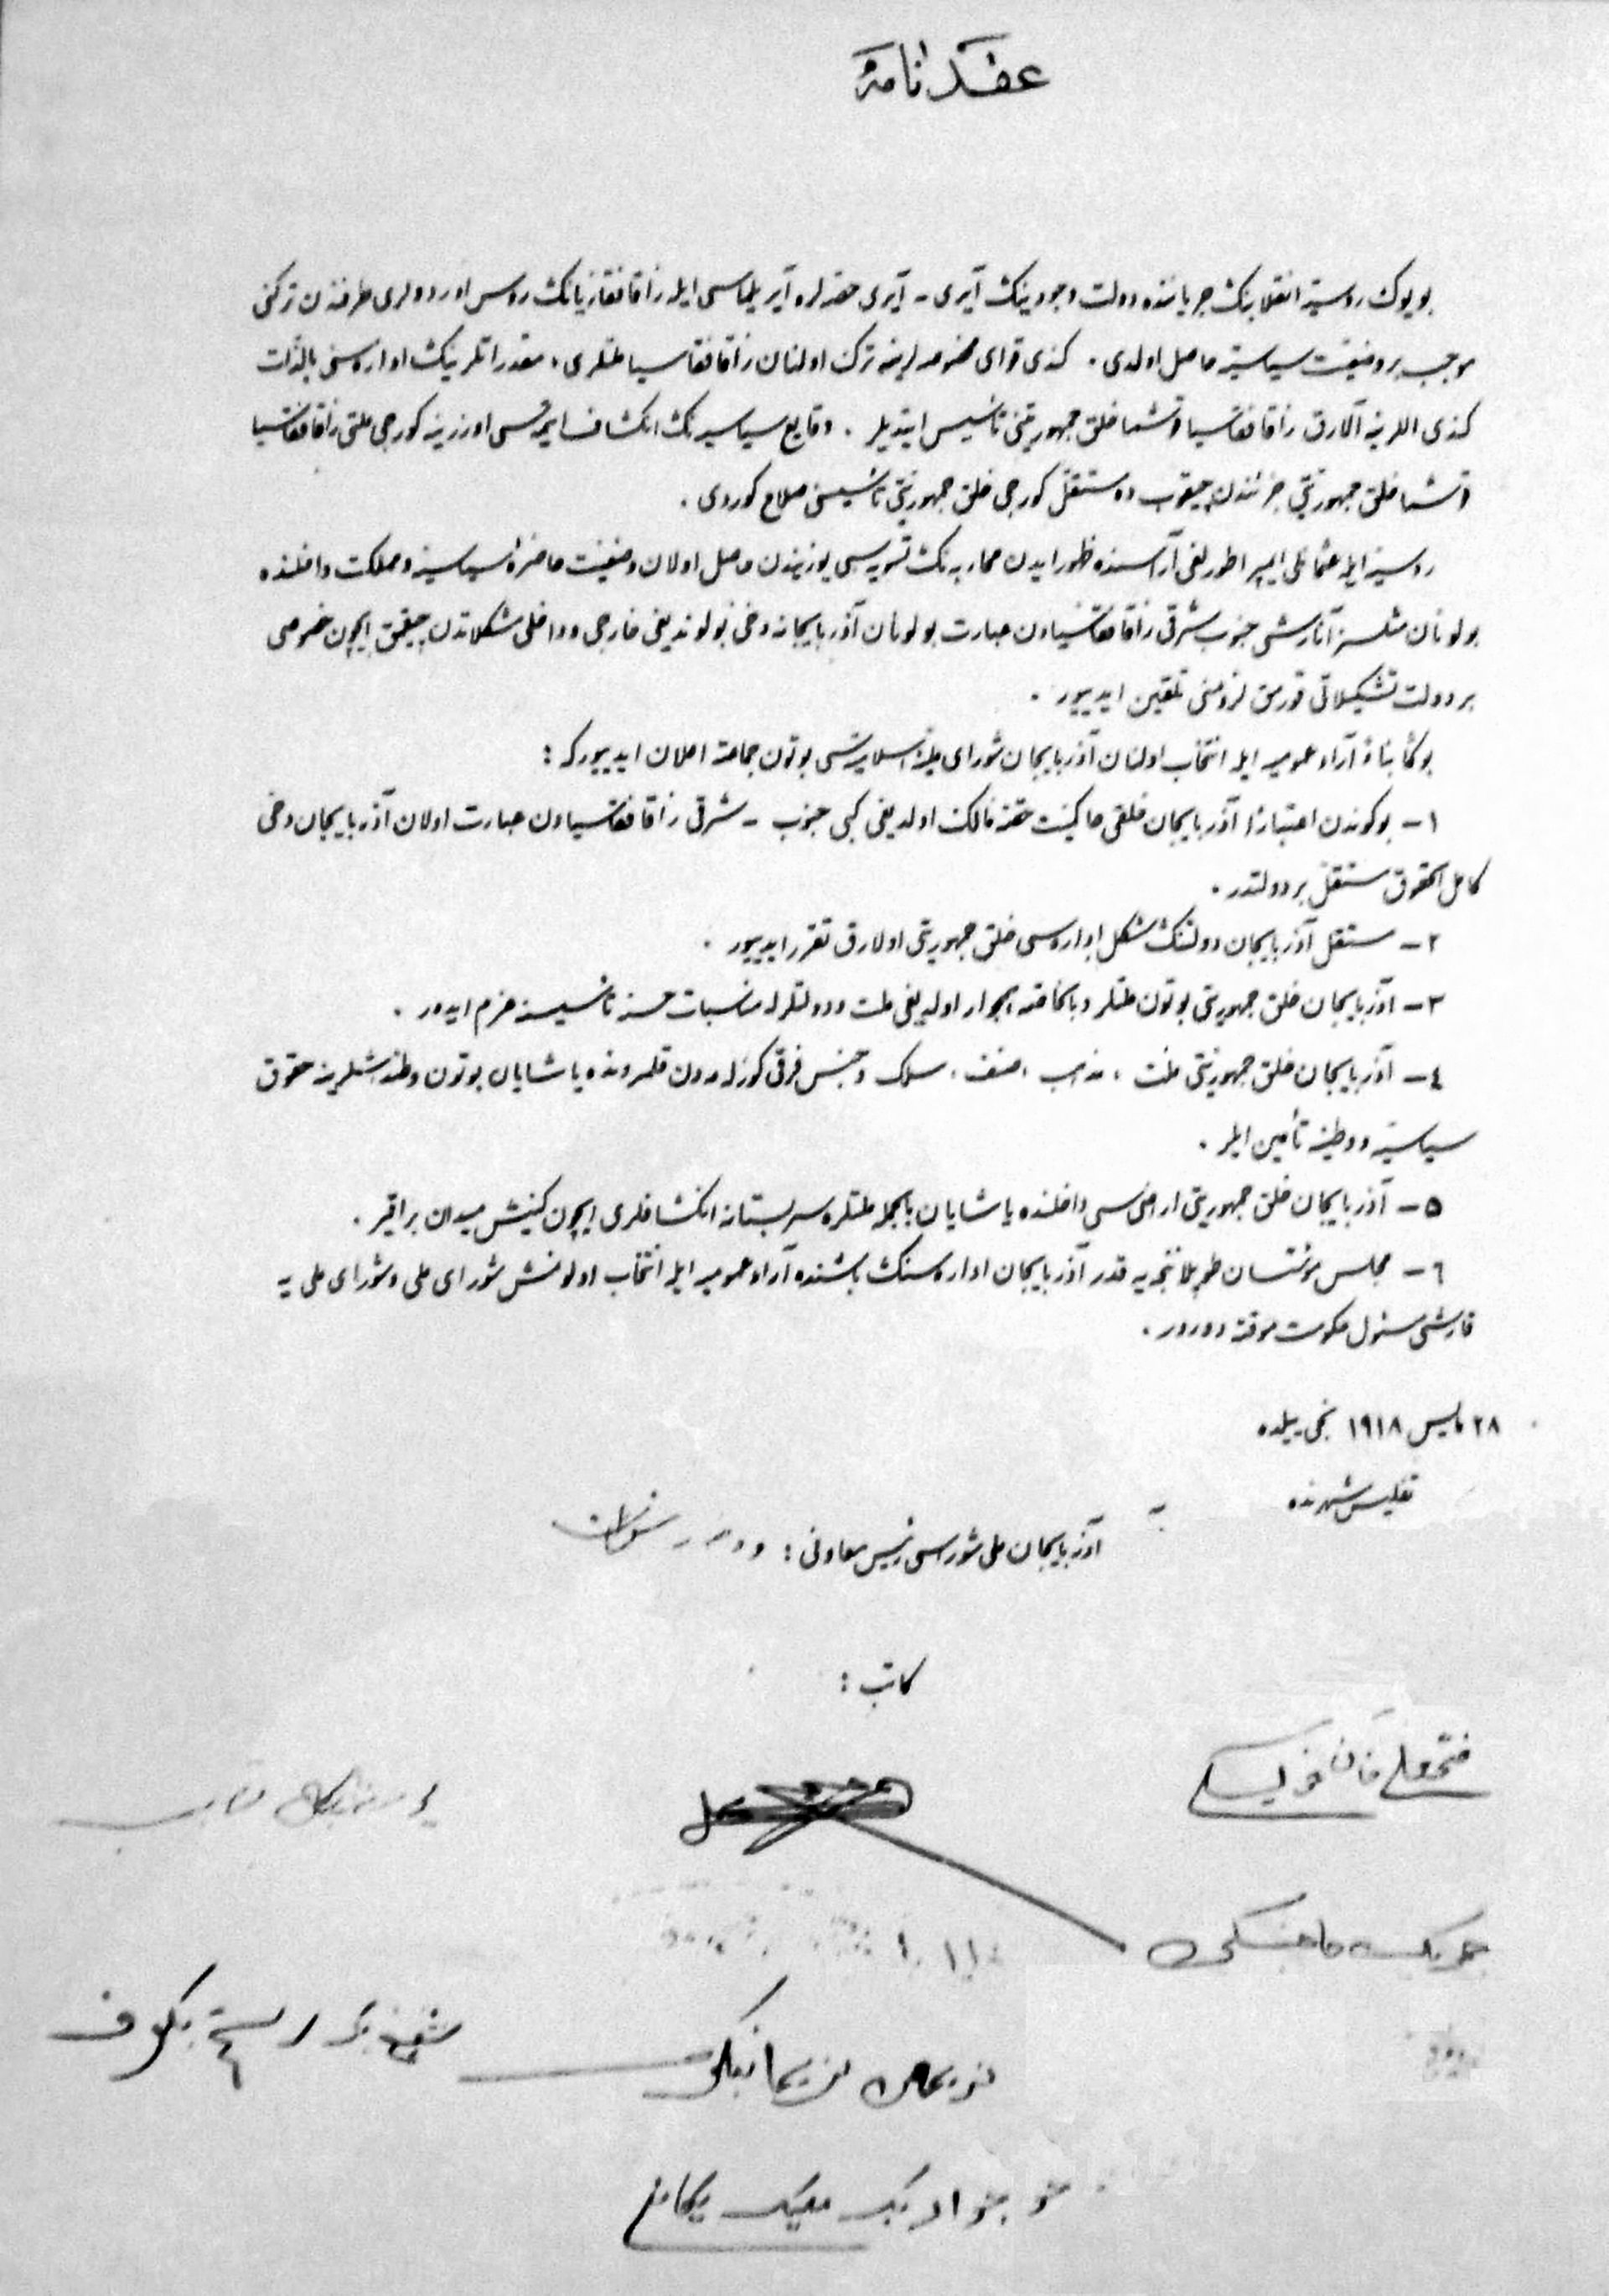 عقدنامه
بویوك روسیه انقلابنك جریاننده دولت وجودینك آیری - آیری حصه‌لره آیریلماسی ایله زاقافقازیانك روس اوردولری طرفندن تركنی
موجب بر وضعیت سیاسیه حاصل اولدی . كندی قوای مخصوصه‌لرینه ترك اولنان زاقافقاسیا ملتلری ، مقدراتلرینك اداره‌سنی بالذات
كندی اللرینه آلارق زاقافقاسیا قوشما خلق جمهوریتنی تأسیس ایتدیلر . وقایع سیاسیه‌نك انكشاف ایتمه‌سی اوزرینه كورجی ملتی زاقافقاسیا
قوشما خلق جمهوریتی جزئندن چیقوب ده مستقل كورجی خلق جمهوریتی تأسیسنی صلاح كوردی .
روسیه ایله عثمانلی ایمپراطورلغی آراسنده ظهور ایدن محاربه‌نك تسویه‌سی یوزیندن حاصل اولان وضعیت حاضرهٔ سیاسیه و مملكت داخلنده
بولونان مثلسز آنارشی جنوب شرقی زاقافقاسیادن عبارت بولونان آذربایجانه دخی بولوندیغی خارجی و داخلی مشكلاتدن چیقمق ایچون خصوصی
بر دولت تشكیلاتی قورمق لزومنی تلقین ایدییور .
بوكا بناءً آراء عمومیه ایله انتخاب اولنان آذربایجان شورای ملیهٔ اسلامیه‌سی بوتون جماعته اعلان ایدییور كه :
۱ـ بو كوندن اعتباراً آذربایجان خلقی حاكمیت حقنه مالك اولدیغی كبی جنوب - شرقی زاقافقاسیادن عبارت اولان آذربایجان دخی
كامل الحقوق مستقل بر دولتدر .
۲ـ مستقل آذربایجان دولتنك شكل اداره‌سی خلق جمهوریتی اولارق تقرر ایدییور .
۳ـ آذربایجان خلق جمهوریتی بوتون ملتلر و باخاصه همجوار اولدیغی ملت و دولتلرله مناسبات حسنه تأسیسنه عزم ایدر .
٤ـ آذربایجان خلق جمهوریتی ملت ، مذهب ، صنف ، سلك و جنس فرقی كوزله‌مه‌دن قلمرونده یاشایان بوتون وطنداشلرینه حقوق
سیاسیه و وطنیه تأمین ایلر .
۵ـ آذربایجان خلق جمهوریتی اراضیسی داخلنده یاشایان بالجمله ملتلره سربستانه انكشافلری ایچون كنیش میدان براقیر .
٦ـ مجلس مؤسسان طوپلانجه‌یه قدر آذربایجان اداره‌سنك باشنده آراء عمومیه ایله انتخاب اولونمش شورای ملی و شورای ملی یه
قارشی مسئول حكومت موقته دورور .
۲۸ مایس ۱۹۱۸ نجی ییلده
تفلیس شهرنده
آذربایجان ملی شوراسی رئیس معاونی :
كاتب :
فتحعلی خان خویسكی
نریمان نریمانبكلی
شفیع بك رستم بكوف
جواد بك ملیك یكانف